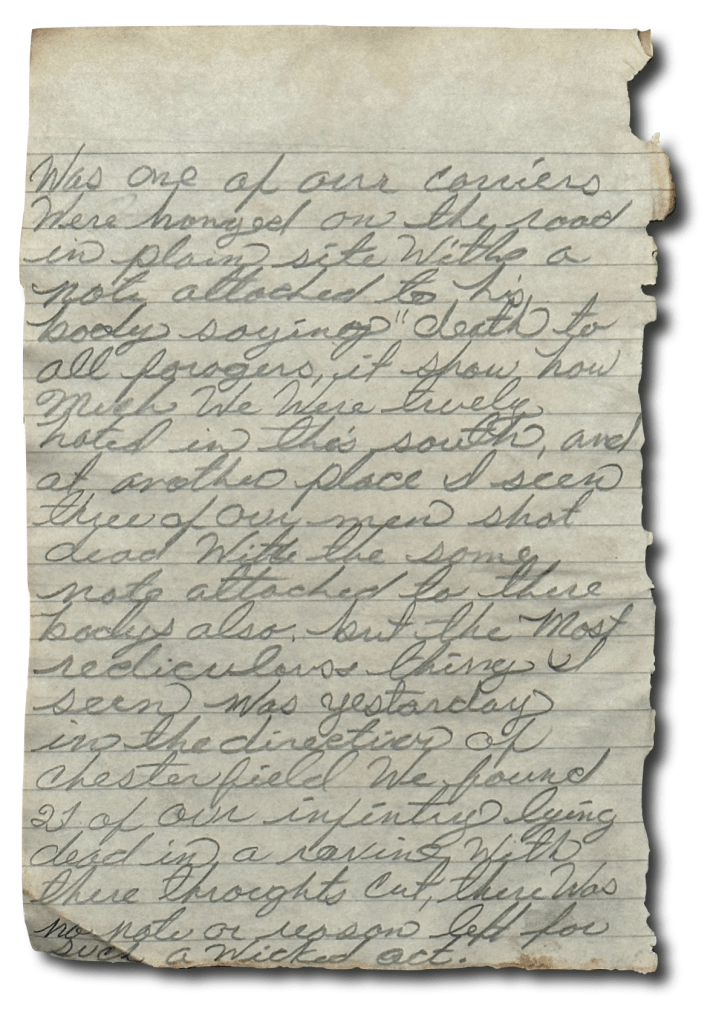 Was one of our corriers
Were honged on the road
in plain site With a
note attached to his
body saying "death to
all foragers, it show how
Much We Were truely
hated in this south, and
at another place I seen
three of our men shot
dead With the same
note attached to there
bodys also. but the Most
rediculouss thing I
seen was yestarday
in the direction of
chesterfield We found
21 of our infintry lying
dead in a ravine With
there throughts cut, there Was
no note or reason left for
such a wicked act.